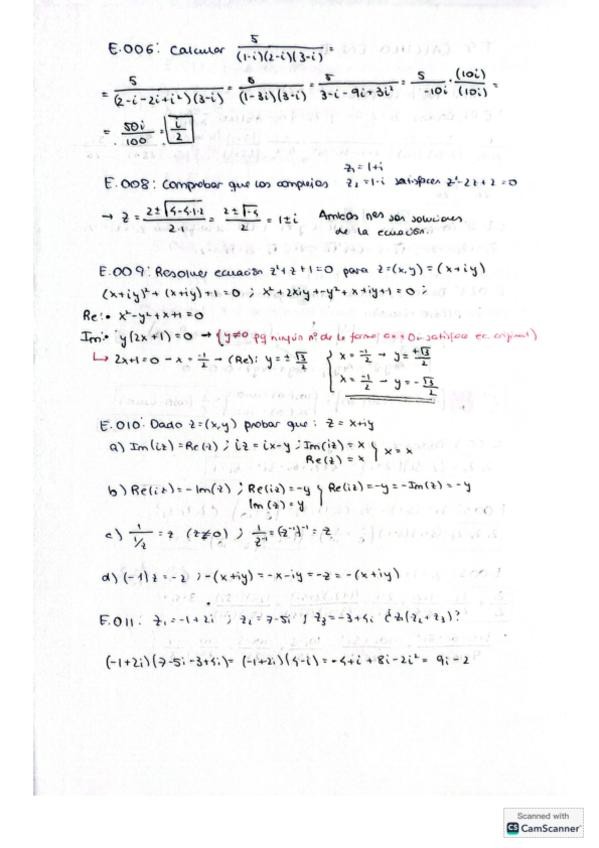 E.006: Calcular 5/((1-i)(2-i)(3-i)) =
= 5/((2-i-2i+i²)(3-i)) = 5/((1-3i)(3-i)) = 5/(3-i-9i+3i²) = 5/(-10i) · (10i)/(10i) =
= 50i/100 = i/2
E.008: Comprobar que los complejos z₁=1+i z₂=1-i satisfacen z²-2z+2=0
→ z = (2±√(4-4·1·2))/(2·1) = (2±√-4)/2 = 1±i Ambos nes son soluciones
de la ecuación.
E.009: Resolver ecuación z²+z+1=0 para z=(x,y)=(x+iy)
(x+iy)²+(x+iy)+1=0 ; x²+2xiy-y²+x+iy+1=0 ;
Re: • x²-y²+x+1=0
Im: • y(2x+1)=0 → {y≠0 pq ningún nº de la forma satisface ec original}
↳ 2x+1=0 → x=-1/2 → (Re): y=±√3/2 { x=-1/2 → y=+√3/2
x=-1/2 → y=-√3/2
E.010: Dado z=(x,y) probar que: z=x+iy
a) Im(iz)=Re(z) ; iz=ix-y ; Im(iz)=x } x=x
Re(z)=x
b) Re(iz)=-Im(z) ; Re(iz)=-y } Re(iz)=-y=-Im(z)=-y
Im(z)=y
c) 1/(1/z) = z (z≠0) ; 1/z⁻¹=(z⁻¹)⁻¹=z
d) (-1)z=-z ; -(x+iy)=-x-iy=-z=-(x+iy)
E.011: z₁=-1+2i ; z₂=7-5i ; z₃=-3+4i ¿z₁(z₂+z₃)?
(-1+2i)(7-5i-3+4i)=(-1+2i)(4-i)=-4+i+8i-2i²=9i-2
Scanned with
CS CamScanner